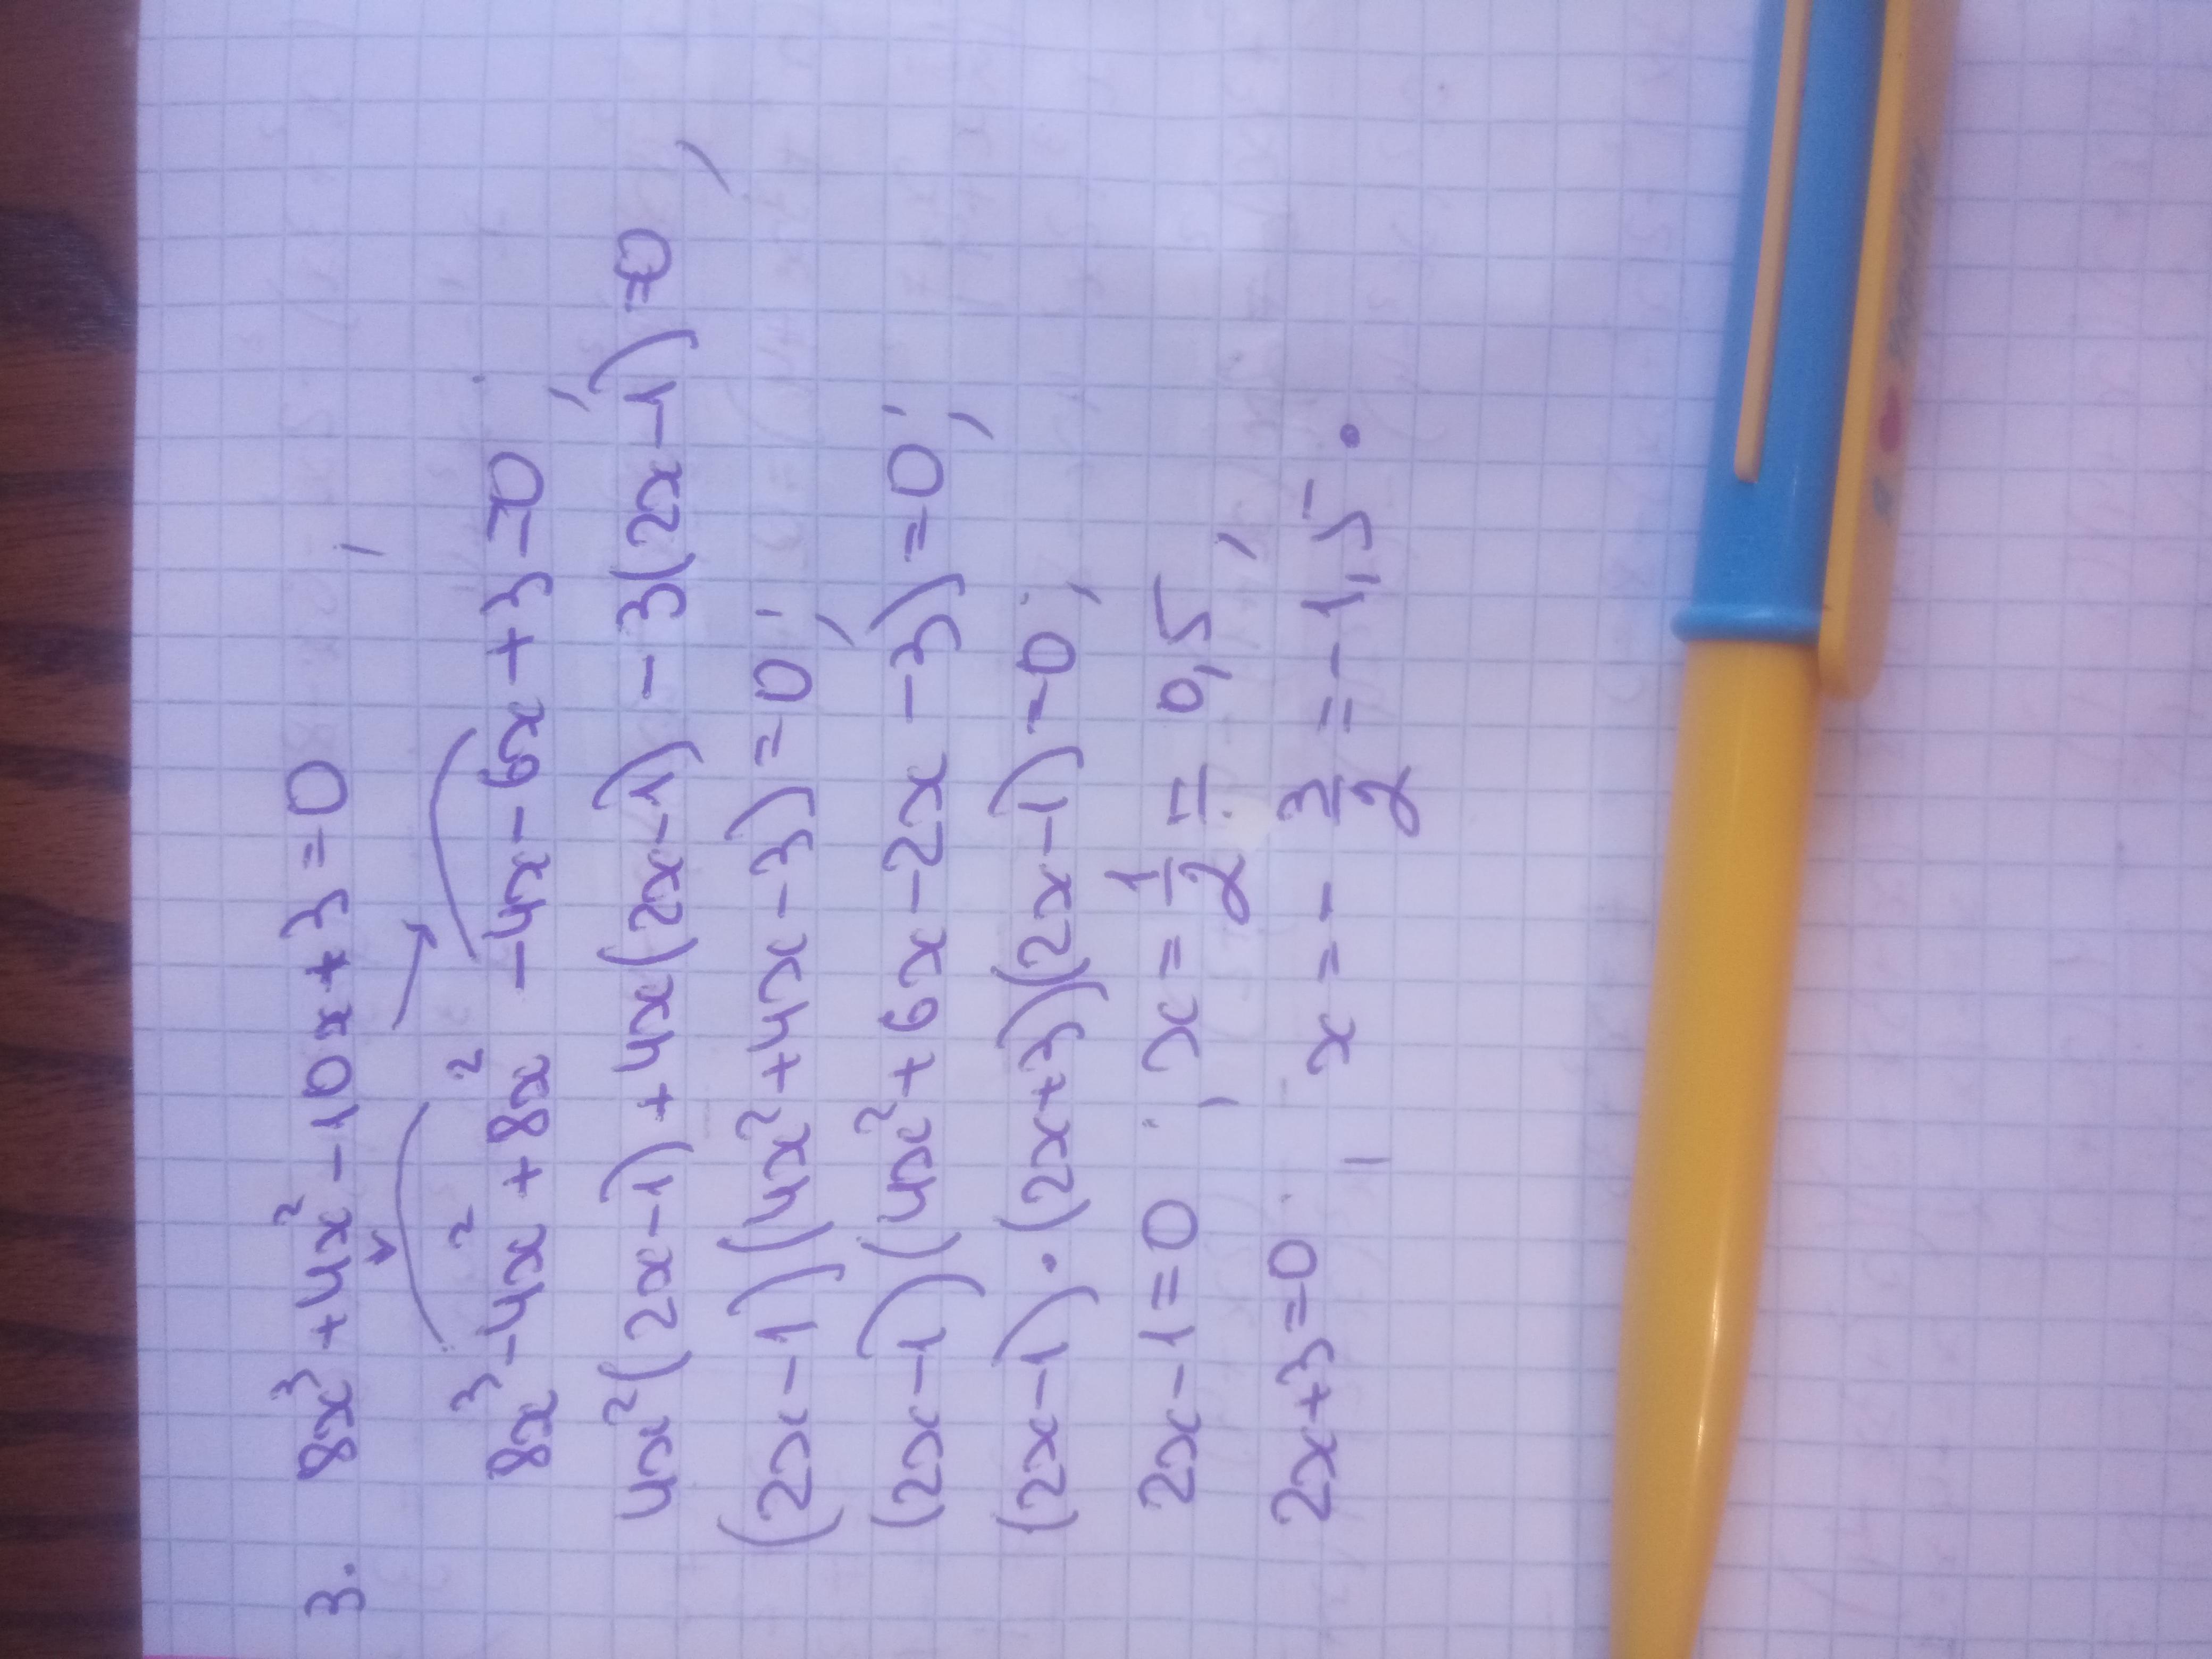 3. 8x³+4x²-10x+3=0,
8x³-4x²+8x²-4x-6x+3=0,
4x²(2x-1)+4x(2x-1)-3(2x-1)=0,
(2x-1)(4x²+4x-3)=0;
(2x-1)(4x²+6x-2x-3)=0;
(2x-1)·(2x+3)(2x-1)=0;
2x-1=0; x=1/2=0,5,
2x+3=0; x=-3/2=-1,5.